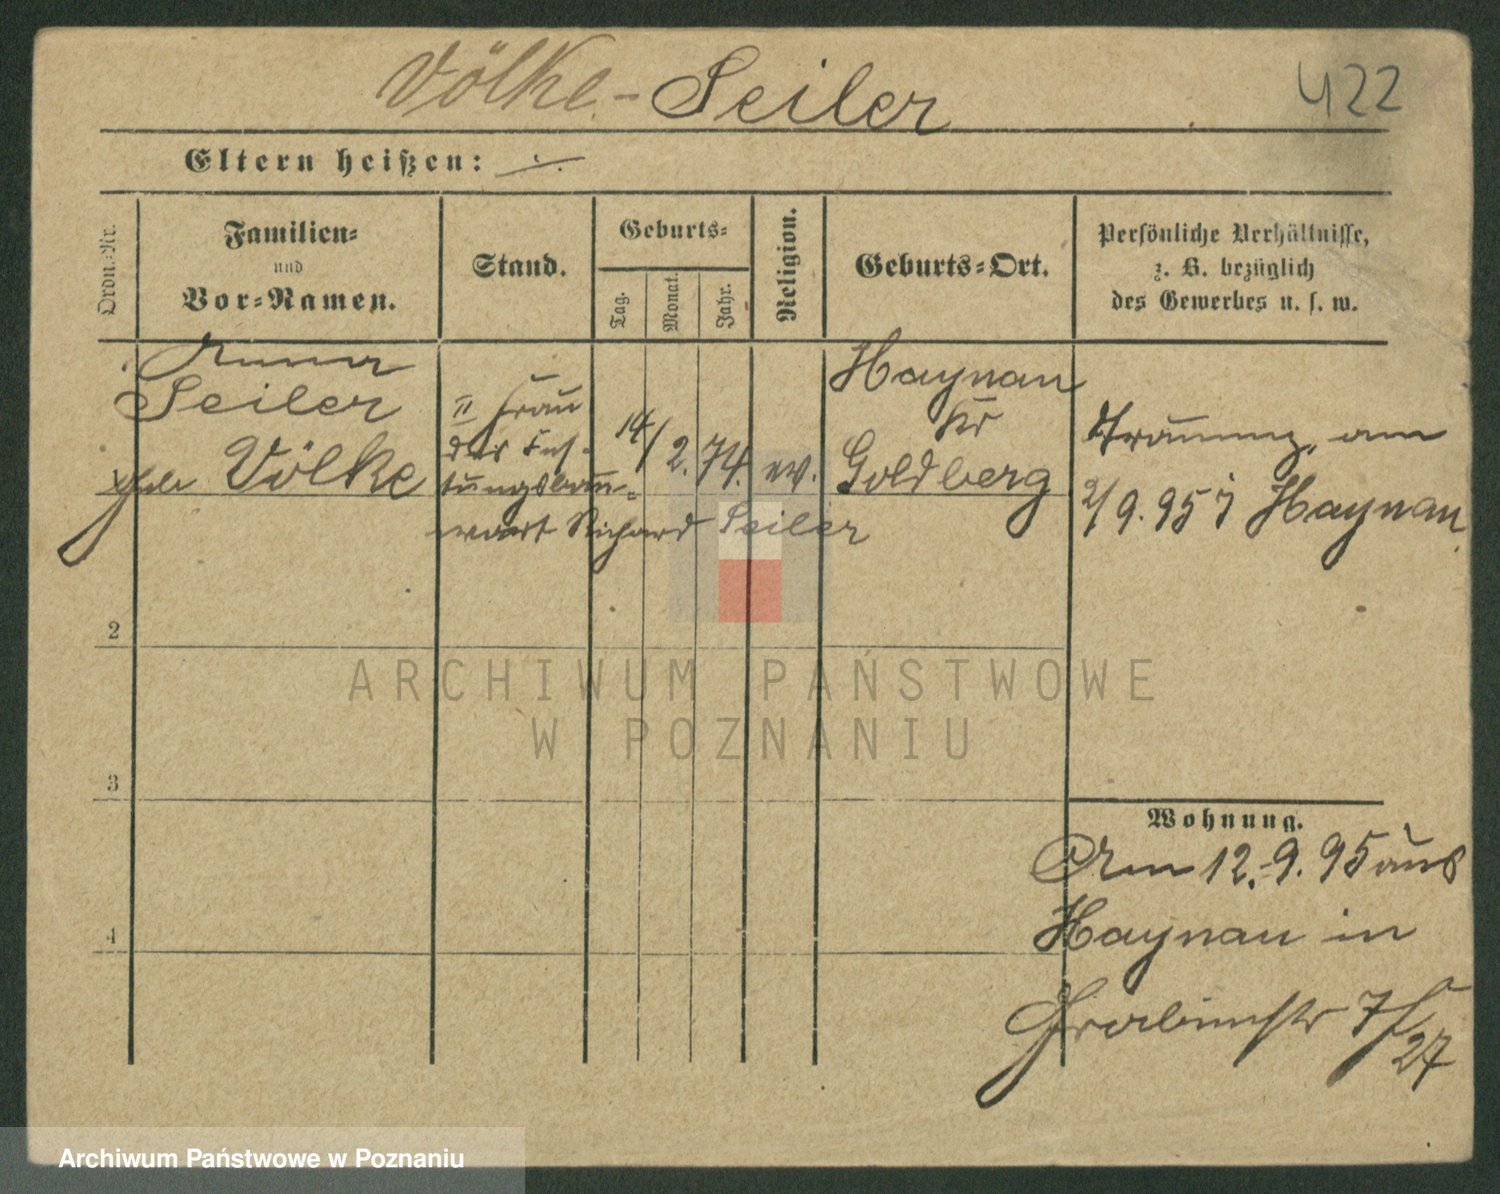 Völke - Seiler
422
Eltern heißen: ·/.
Ordn.-Nr.
Familien-
und
Vor-Namen.
Stand.
Geburts-
Tag.
Monat.
Jahr.
Religion.
Geburts-Ort.
Persönliche Verhältnisse,
z. B. bezüglich
des Gewerbes u. s. w.
Anna
Seiler
geb. Völke
II Frau
des Fes-
tungsbau-
wart Richard Seiler
14/ 2. 74.
ev.
Haynau
Kr
Goldberg
Trauung am
2/9. 95 i Haynau
2
3
4
Wohnung.
Am 12.9.95 aus
Haynau in
27
ARCHIWUM PAŃSTWOWE
W POZNANIU
Archiwum Państwowe w Poznaniu